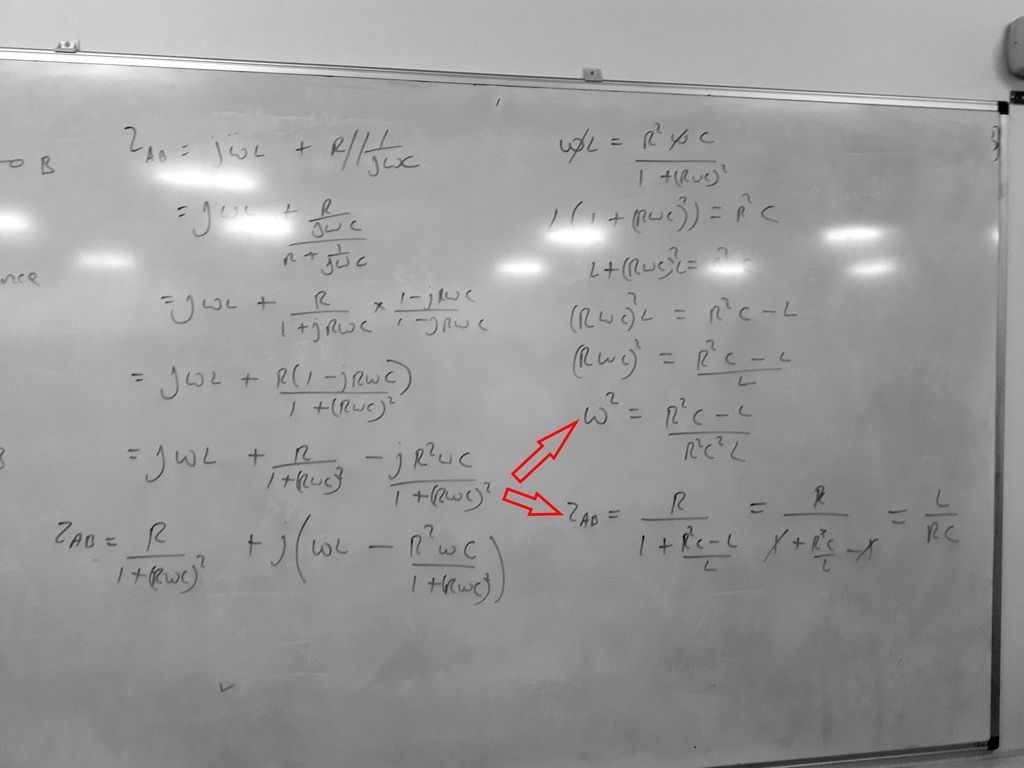 o B
Z_AB = jωL + R//1/jωC
= jωL + (R/jωC)/(R + 1/jωC)
= jωL + R/(1+jRωC) × (1-jRωC)/(1-jRωC)
= jωL + R(1-jRωC)/(1+(RωC)²)
= jωL + R/(1+(RωC)²) - jR²ωC/(1+(RωC)²)
Z_AB = R/(1+(RωC)²) + j(ωL - R²ωC/(1+(RωC)²))
ωL = R²ωC/(1+(RωC)²)
L(1+(RωC)²) = R²C
L+(RωC)²L =
(RωC)²L = R²C-L
(RωC)² = (R²C-L)/L
ω² = (R²C-L)/(R²C²L)
Z_AB = R/(1+(R²C-L)/L) = R/(1+R²C/L-1) = L/RC